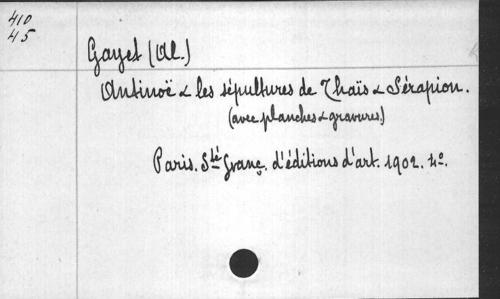 410
45
Gayet (Al.)
Antinoë & les sépultures de Thaïs & Sérapion.
(avec planches & gravures.)
Paris. Sté franç. d'éditions d'art. 1902. 4o.